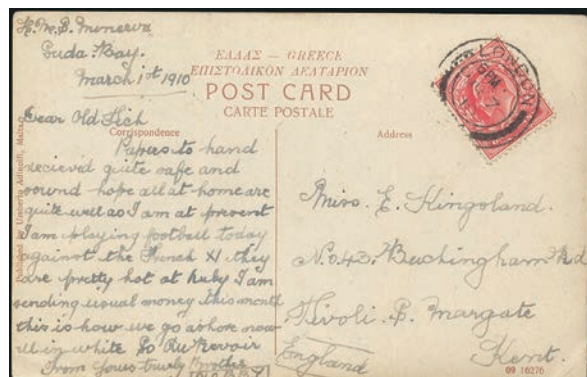 H.M.S. Minerva
Suda Bay.
March 1st 1910
ΕΛΛΑΣ — GREECE
ΕΠΙΣΤΟΛΙΚΟΝ ΔΕΛΤΑΡΙΟΝ
POST CARD
CARTE POSTALE
Correspondence
Address
Dear Old
Papers to hand
recieved quite safe and
sound hope all at home are
quite well as I am at present
I am playing football today
against the French XI they
are pretty hot at I am
sending usual money this month
this is how we go ashore now
all in white So Au Revoir
From Yours truly Brother
Miss. E. Kingsland.
No. 43. Buckingham Rd
Tivoli. P. Margate
Kent.
England
09 16276
Published by Umberto Adinolfi, Malta
LONDON